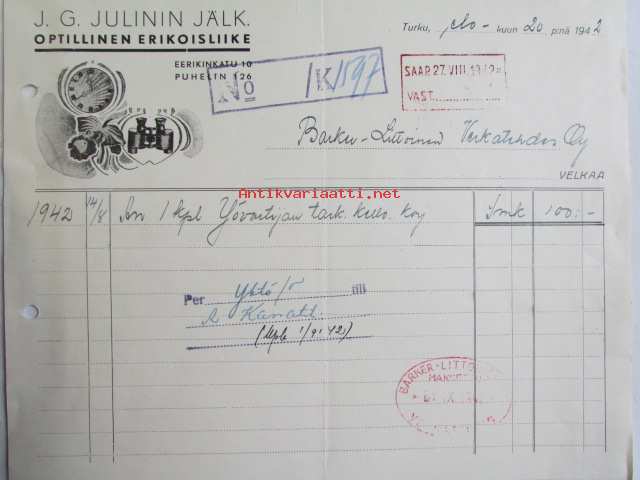 J. G. JULININ JÄLK.
OPTILLINEN ERIKOISLIIKE
EERIKINKATU 10
PUHELIN 126
Turku, elo - kuun 20 p:nä 1942
No /K/1597
SAAP. 27. VIII. 1942
VAST.
Barker-Littoinen Verkatehdas Oy
VELKAA
Antikvariaatti.net
1942 14/8 An 1 kpl Yövartijan tark. kello. korj Smk 100:-
Per till
A
1/9. 42.
BARKER-LITTOI